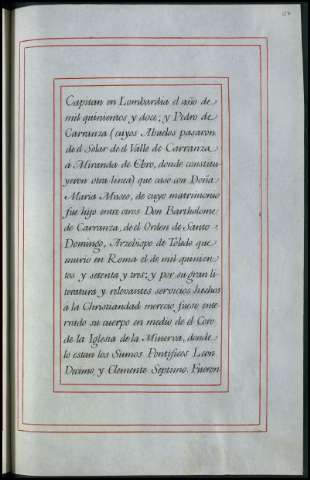 Capitan en Lombardia el año de
mil quinientos y doce; y Pedro de
Carranza (cuyos Abuelos pasaron
de el Solar de el Valle de Carranza
á Miranda de Ebro, donde constitu
yeron otra linea) que caso con Doña
Maria Museo, de cuyo matrimonio
fue hijo entre otros Don Bartholome
de Carranza, de el Orden de Santo
Domingo, Arzobispo de Toledo que
murio en Roma el de mil quinien
tos y setenta y tres; y por su gran li
teratura y relevantes servicios hechos
a la Christiandad merecio fuese ente
rrado su cuerpo en medio de el Coro
de la Iglesia de la Minerva, donde
lo estan los Sumos Pontifices Leon
Decimo y Clemente Septimo. Fueron